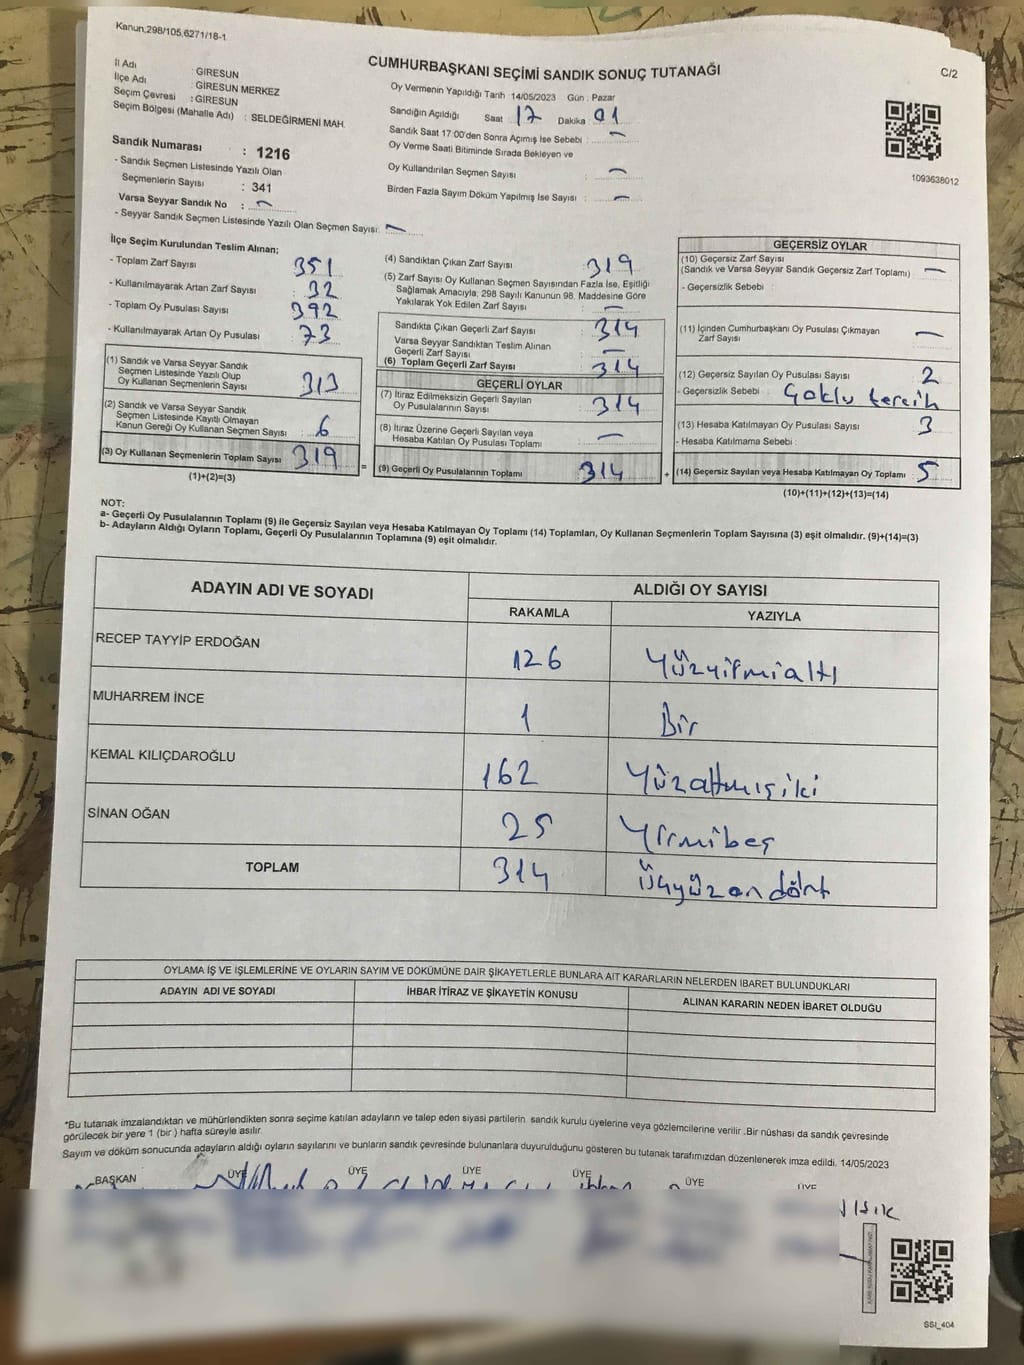 Kanun,298/105,6271/18-1
CUMHURBAŞKANI SEÇİMİ SANDIK SONUÇ TUTANAĞI
C/2
İl Adı : GİRESUN
İlçe Adı : GİRESUN MERKEZ
Seçim Çevresi : GİRESUN
Seçim Bölgesi (Mahalle Adı) : SELDEĞİRMENİ MAH.
Oy Vermenin Yapıldığı Tarih 14/05/2023 Gün : Pazar
Sandığın Açıldığı Saat 17 Dakika 01
Sandık Saat 17:00'den Sonra Açımış İse Sebebi : -
Oy Verme Saati Bitiminde Sırada Bekleyen ve
Oy Kullandırılan Seçmen Sayısı : -
Birden Fazla Sayım Döküm Yapılmış İse Sayısı : -
1093638012
Sandık Numarası : 1216
- Sandık Seçmen Listesinde Yazılı Olan
Seçmenlerin Sayısı : 341
Varsa Seyyar Sandık No : -
- Seyyar Sandık Seçmen Listesinde Yazılı Olan Seçmen Sayısı: -
İlçe Seçim Kurulundan Teslim Alınan;
- Toplam Zarf Sayısı : 351
- Kullanılmayarak Artan Zarf Sayısı : 32
- Toplam Oy Pusulası Sayısı : 392
- Kullanılmayarak Artan Oy Pusulası : 73
(1) Sandık ve Varsa Seyyar Sandık
Seçmen Listesinde Yazılı Olup
Oy Kullanan Seçmenlerin Sayısı : 313
(2) Sandık ve Varsa Seyyar Sandık
Seçmen Listesinde Kayıtlı Olmayan
Kanun Gereği Oy Kullanan Seçmen Sayısı : 6
(3) Oy Kullanan Seçmenlerin Toplam Sayısı 319
(1)+(2)=(3)
(4) Sandıktan Çıkan Zarf Sayısı : 319
(5) Zarf Sayısı Oy Kullanan Seçmen Sayısından Fazla İse, Eşitliği
Sağlamak Amacıyla, 298 Sayılı Kanunun 98. Maddesine Göre
Yakılarak Yok Edilen Zarf Sayısı : -
Sandıkta Çıkan Geçerli Zarf Sayısı : 314
Varsa Seyyar Sandıktan Teslim Alınan
Geçerli Zarf Sayısı : -
(6) Toplam Geçerli Zarf Sayısı : 314
GEÇERLİ OYLAR
(7) İtiraz Edilmeksizin Geçerli Sayılan
Oy Pusulalarının Sayısı : 314
(8) İtiraz Üzerine Geçerli Sayılan veya
Hesaba Katılan Oy Pusulası Toplamı : -
= (9) Geçerli Oy Pusulalarının Toplamı : 314 +
GEÇERSİZ OYLAR
(10) Geçersiz Zarf Sayısı
(Sandık ve Varsa Seyyar Sandık Geçersiz Zarf Toplamı) -
- Geçersizlik Sebebi :
(11) İçinden Cumhurbaşkanı Oy Pusulası Çıkmayan
Zarf Sayısı : -
(12) Geçersiz Sayılan Oy Pusulası Sayısı : 2
- Geçersizlik Sebebi : Çoklu tercih
(13) Hesaba Katılmayan Oy Pusulası Sayısı : 3
- Hesaba Katılmama Sebebi :
(14) Geçersiz Sayılan veya Hesaba Katılmayan Oy Toplamı : 5
(10)+(11)+(12)+(13)=(14)
NOT:
a- Geçerli Oy Pusulalarının Toplamı (9) ile Geçersiz Sayılan veya Hesaba Katılmayan Oy Toplamı (14) Toplamları, Oy Kullanan Seçmenlerin Toplam Sayısına (3) eşit olmalıdır. (9)+(14)=(3)
b- Adayların Aldığı Oyların Toplamı, Geçerli Oy Pusulalarının Toplamına (9) eşit olmalıdır.
ADAYIN ADI VE SOYADI ALDIĞI OY SAYISI
RAKAMLA YAZIYLA
RECEP TAYYİP ERDOĞAN 126 Yüzyirmialtı
MUHARREM İNCE 1 Bir
KEMAL KILIÇDAROĞLU 162 Yüzaltmışiki
SİNAN OĞAN 25 Yirmibeş
TOPLAM 314 Üçyüzondört
OYLAMA İŞ VE İŞLEMLERİNE VE OYLARIN SAYIM VE DÖKÜMÜNE DAİR ŞİKAYETLERLE BUNLARA AİT KARARLARIN NELERDEN İBARET BULUNDUKLARI
ADAYIN ADI VE SOYADI İHBAR İTİRAZ VE ŞİKAYETİN KONUSU ALINAN KARARIN NEDEN İBARET OLDUĞU
*Bu tutanak imzalandıktan ve mühürlendikten sonra seçime katılan adayların ve talep eden siyasi partilerin sandık kurulu üyelerine veya gözlemcilerine verilir .Bir nüshası da sandık çevresinde
görülecek bir yere 1 (bir ) hafta süreyle asılır.
Sayım ve döküm sonucunda adayların aldığı oyların sayılarını ve bunların sandık çevresinde bulunanlara duyurulduğunu gösteren bu tutanak tarafımızdan düzenlenerek imza edildi. 14/05/2023
BAŞKAN ÜYE ÜYE ÜYE ÜYE ÜYE ÜYE
SSI_404